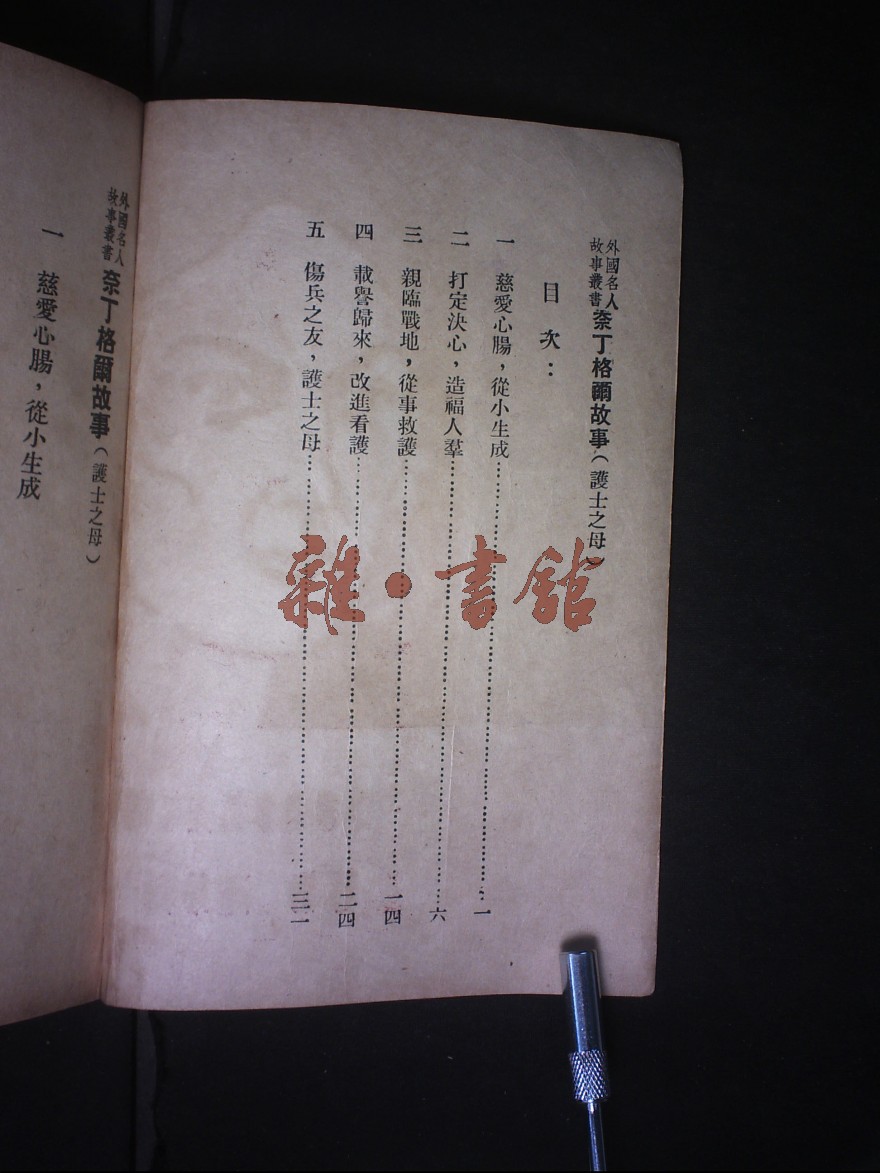 外國名人
故事叢書
奈丁格爾故事（護士之母）
目次：
一　慈愛心腸，從小生成……一
二　打定決心，造福人羣……六
三　親臨戰地，從事救護……一四
四　載譽歸來，改進看護……二四
五　傷兵之友，護士之母……三一
雜·書館
外國名人
故事叢書
奈丁格爾故事（護士之母）
一　慈愛心腸，從小生成